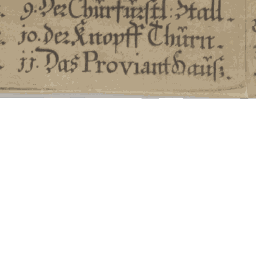 9. Der Chürfürstl: Stall.
10. der Knopff Thürn.
11. Das Proviant Hauß.